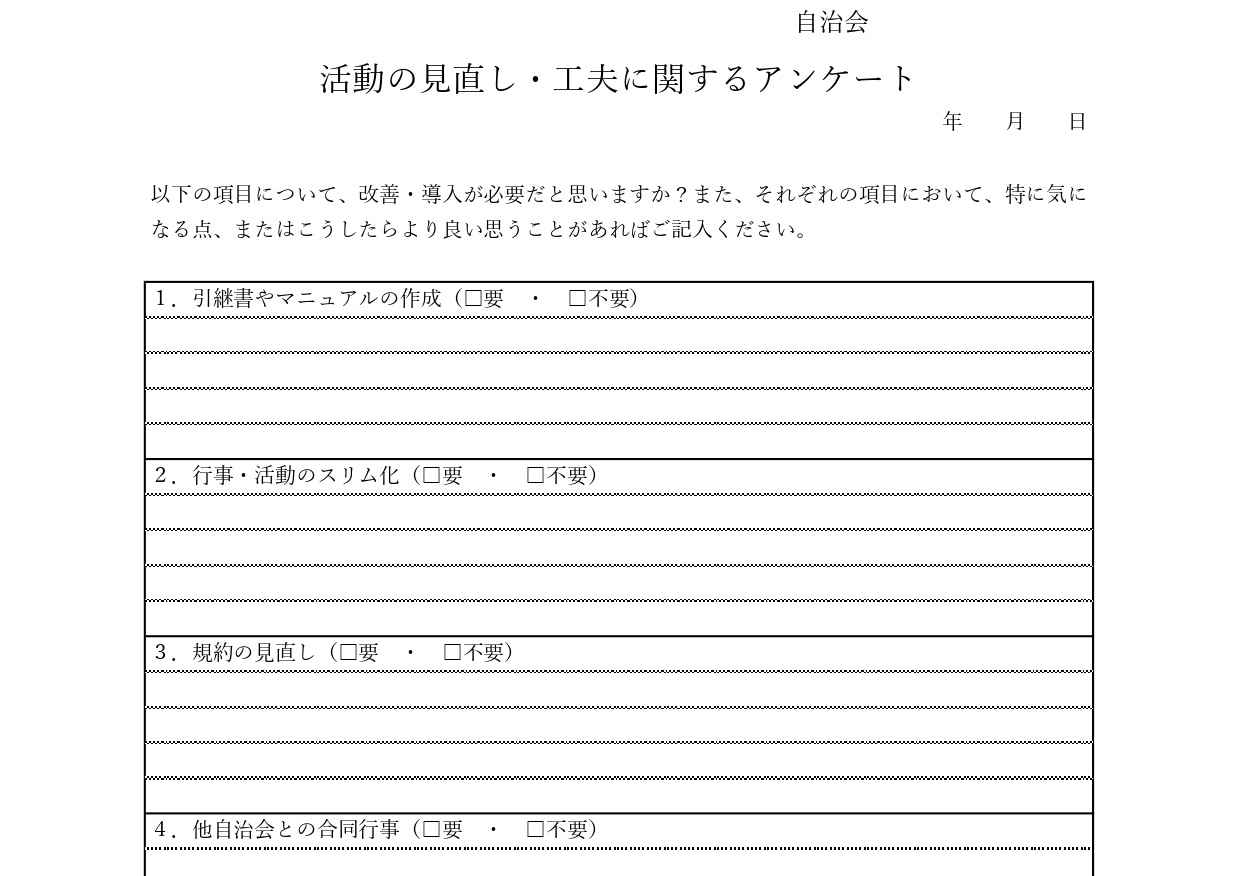 自治会
活動の見直し・工夫に関するアンケート
年　　月　　日
以下の項目について、改善・導入が必要だと思いますか？また、それぞれの項目において、特に気に
なる点、またはこうしたらより良い思うことがあればご記入ください。
１．引継書やマニュアルの作成（□要　・　□不要）
２．行事・活動のスリム化（□要　・　□不要）
３．規約の見直し（□要　・　□不要）
４．他自治会との合同行事（□要　・　□不要）